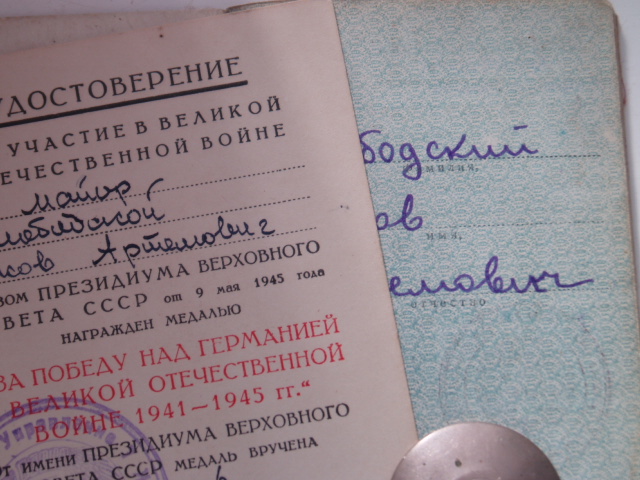 УДОСТОВЕРЕНИЕ
УЧАСТИЕ В ВЕЛИКОЙ
ЕЧЕСТВЕННОЙ ВОЙНЕ
майор
ков Артемович
ЗОМ ПРЕЗИДИУМА ВЕРХОВНОГО
ОВЕТА СССР от 9 мая 1945 года
НАГРАЖДЕН МЕДАЛЬЮ
ЗА ПОБЕДУ НАД ГЕРМАНИЕЙ
ВЕЛИКОЙ ОТЕЧЕСТВЕННОЙ
ВОЙНЕ 1941—1945 гг.“
от ИМЕНИ ПРЕЗИДИУМА ВЕРХОВНОГО
ОВЕТА СССР МЕДАЛЬ ВРУЧЕНА
Управление
бодский
фамилия,
ов
имя,
емович
отчество